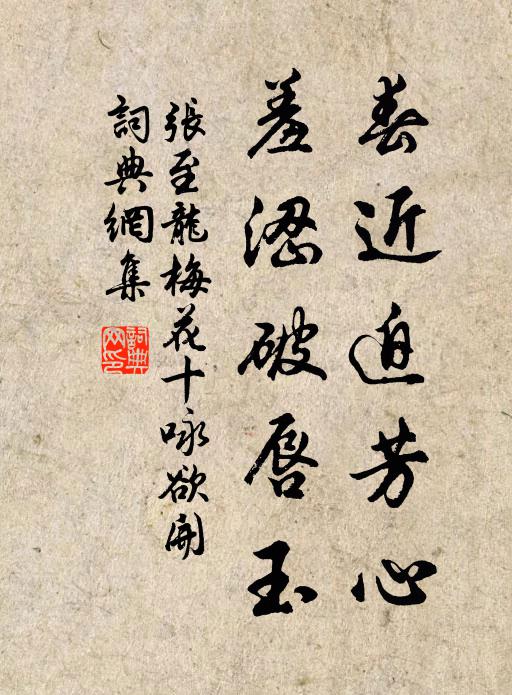 春近迫芳心
羞涩破唇玉
張至龍梅花十咏欲開
詞典網集
詞典网印